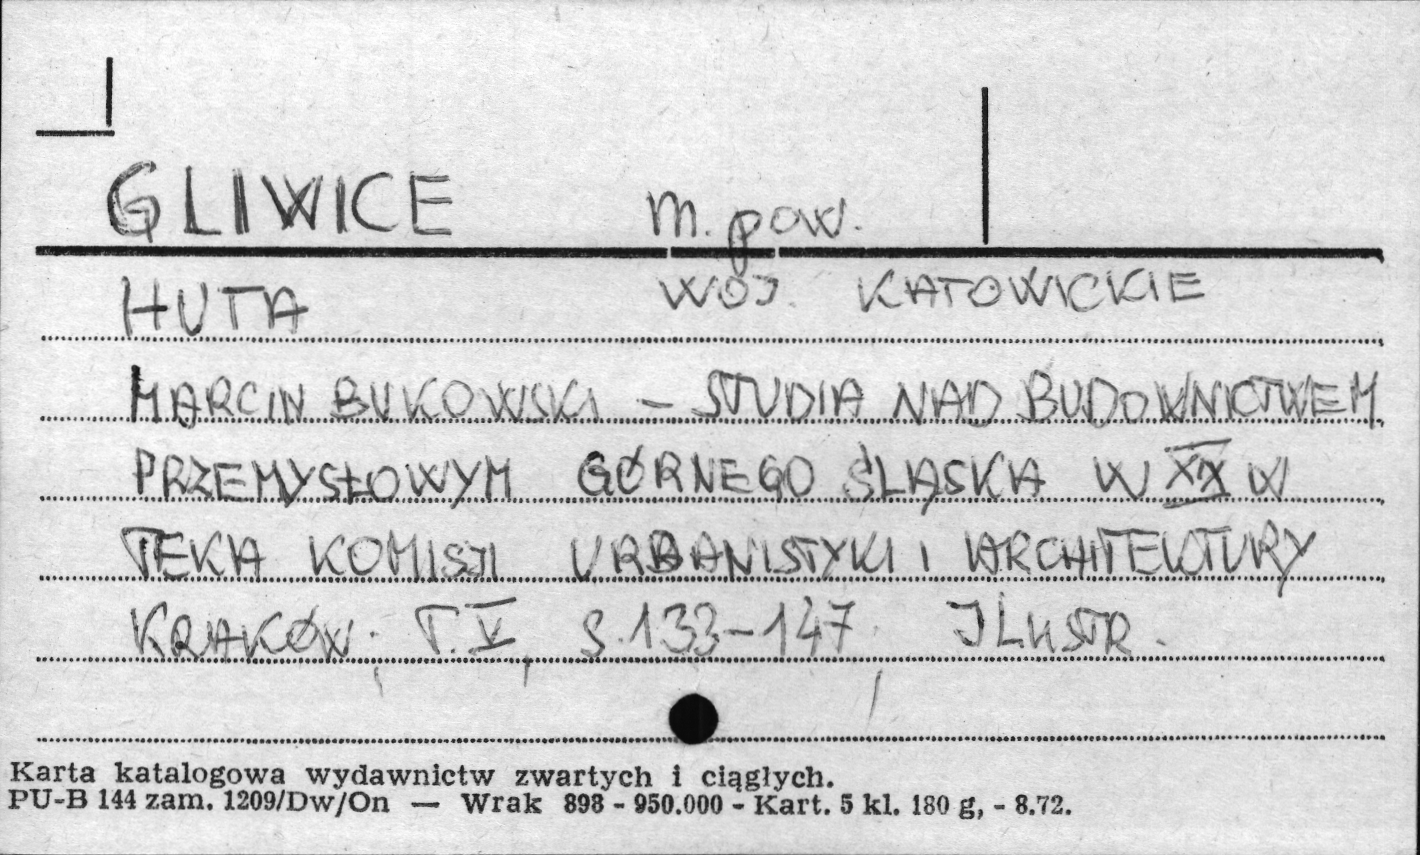 GLIWICE m. pow.
HUTA WOJ. KATOWICKIE
MARCIN BUKOWSKI – STUDIA NAD BUDOWNICTWEM
PRZEMYSŁOWYM GÓRNEGO ŚLĄSKA W XIX W
TEKA KOMISJI URBANISTYKI I ARCHITEKTURY
KRAKÓW. T. V, S. 133–147. ILUSTR.
Karta katalogowa wydawnictw zwartych i ciągłych.
PU-B 144 zam. 1209/Dw/On — Wrak 898 - 950.000 - Kart. 5 kl. 180 g, - 8.72.